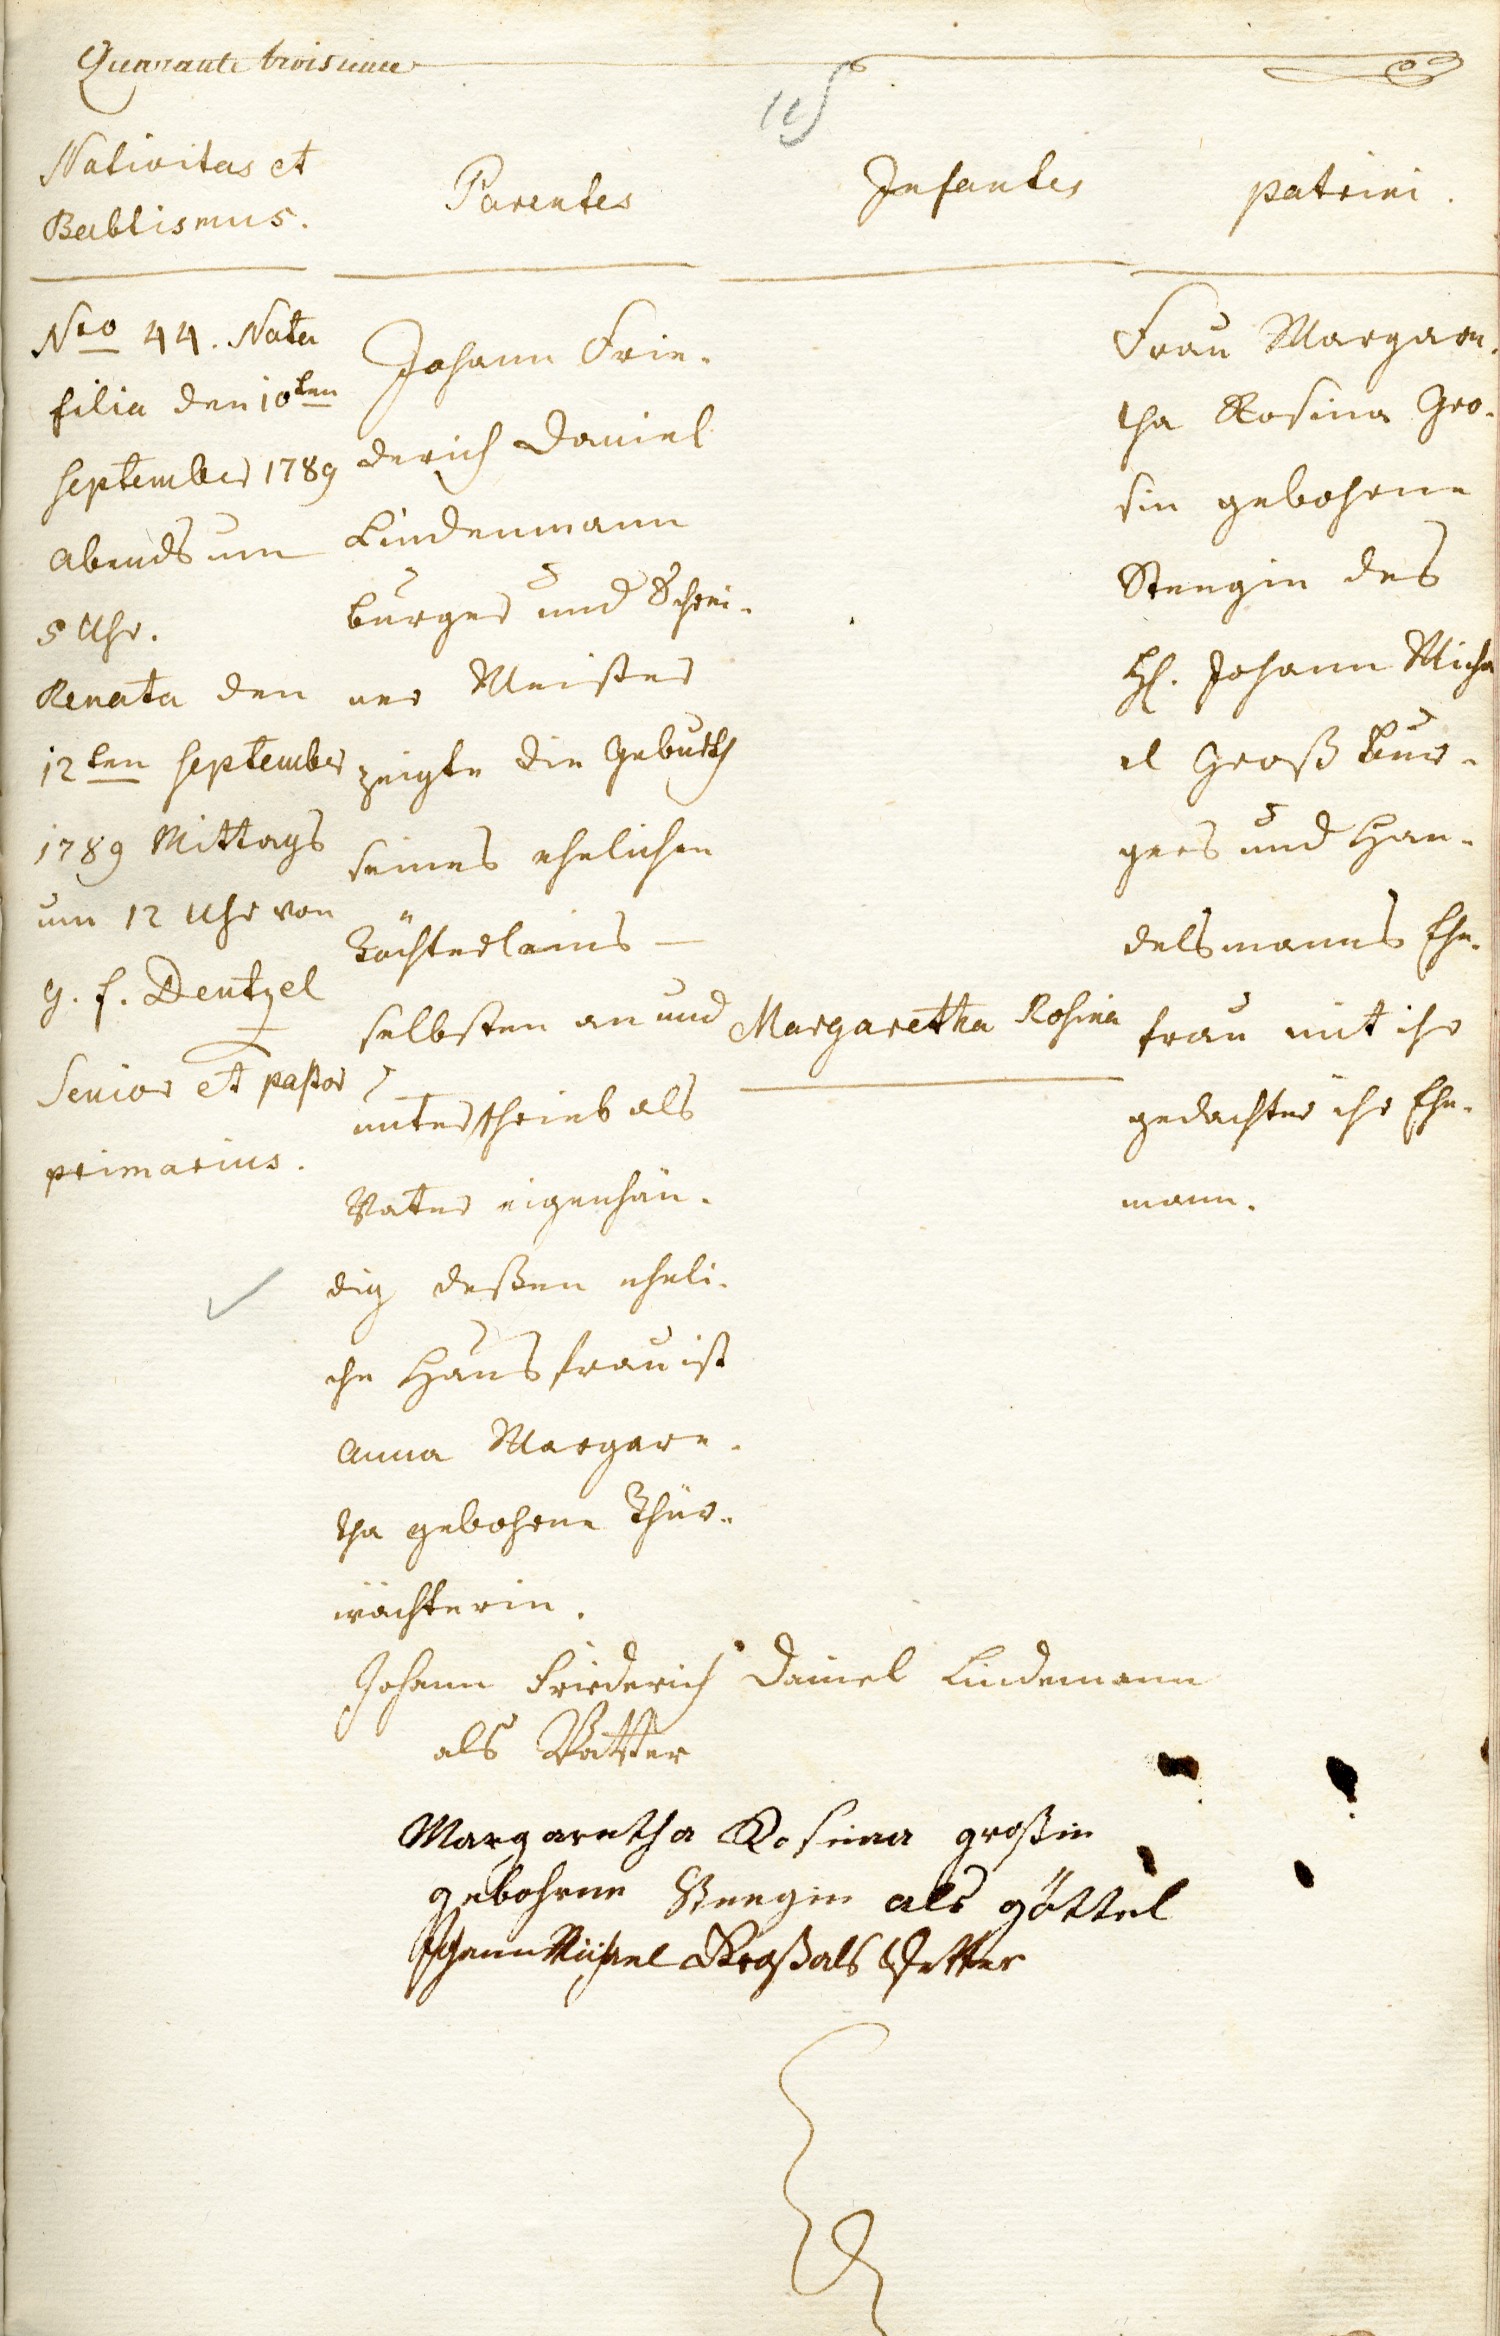 Quarante troisieme
Nativitas et
Babtismus.
Nro 44. Nata
filia den 10ten
September 1789
Abends um
5 Uhr.
Renata den
12ten September
1789 Mittags
um 12 Uhr von
G. F. Dentzel
Senior et pastor
primarius.
Parentes
Johann Frie-
derich Daniel
Lindenmann
burger und Schrei-
ner Meister
zeigte die Geburth
seines ehelichen
Töchterleins —
selbsten an und
unterschrieb als
Vater eigenhän-
dig deßen eheli-
che Hausfrau ist
Anna Margare-
tha gebohrne Thür-
wächterin.
Infantes
Margaretha Rosina
patrini.
Frau Margare-
tha Rosina Gro-
sin gebohrne
Stengin des
H. Johann Micha
el Groß Bur-
gers und Han-
delsmanns Ehe-
frau mit ihr
gedachter ihr Ehe-
mann.
Johann Friederich Daniel Lindemann
als Vatter
Margaretha Rosina großin
gebohrne Stengin als göttel
Johann Michael Groß als Petter